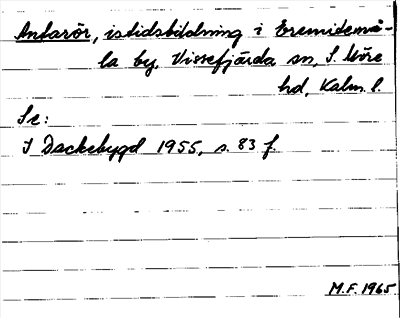 Anfarör, istidsbildning i Eremitemå-
la by, Vissefjärda sn, S. Möre
hd, Kalm. l.
Se:
I Dackebygd 1955, s. 83 f.
M.F. 1965